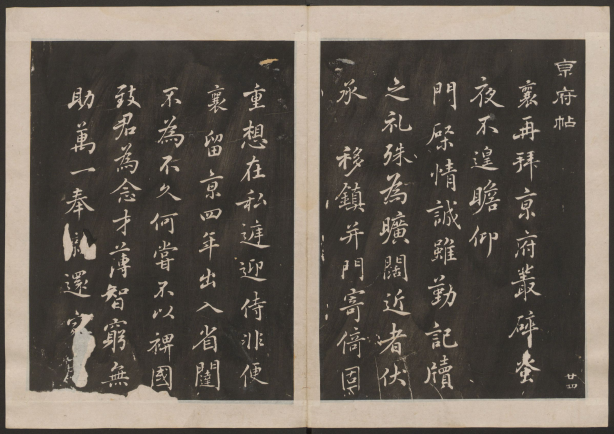 亰府帖
襄再拜亰府叢碎蚤
夜不遑瞻仰
門屏情誠雖勤記牘
之礼殊為曠闊近者伏
承 移鎮并門寄倚固
廿四
重想在私迎侍非便
襄留亰四年出入省闥
不為不久何嘗不以裨國
致君為念才薄智窮無
助萬一奉還